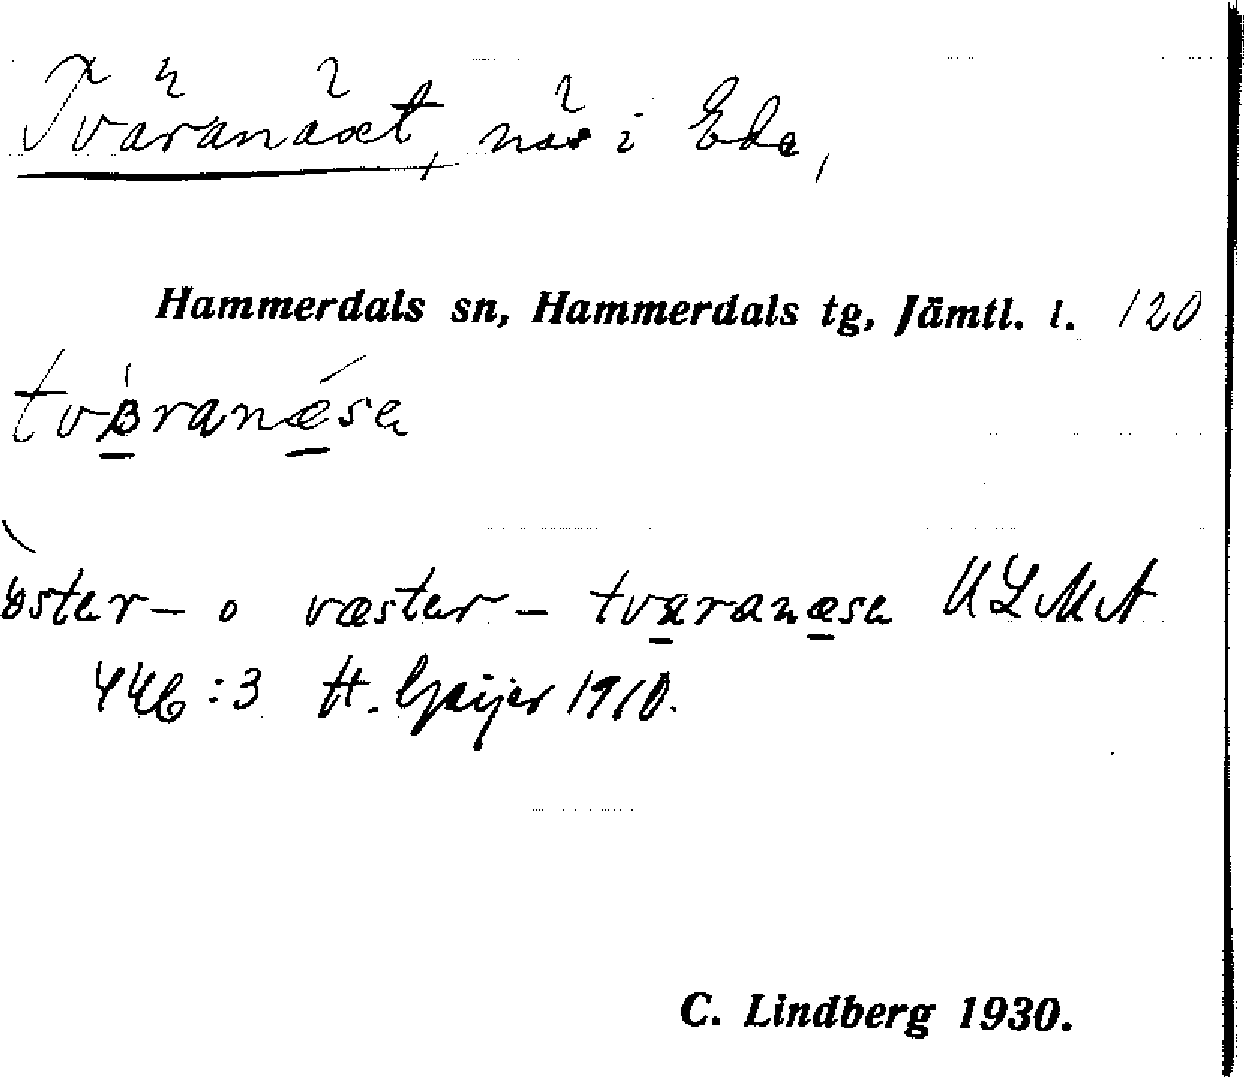 Tväranäset, näs i Ede,
Hammerdals sn, Hammerdals tg, Jämtl. l. 120
tværanǽsa
öster- o væster- tværanæsa ULMA
446:3 H. Geijer 1910.
C. Lindberg 1930.